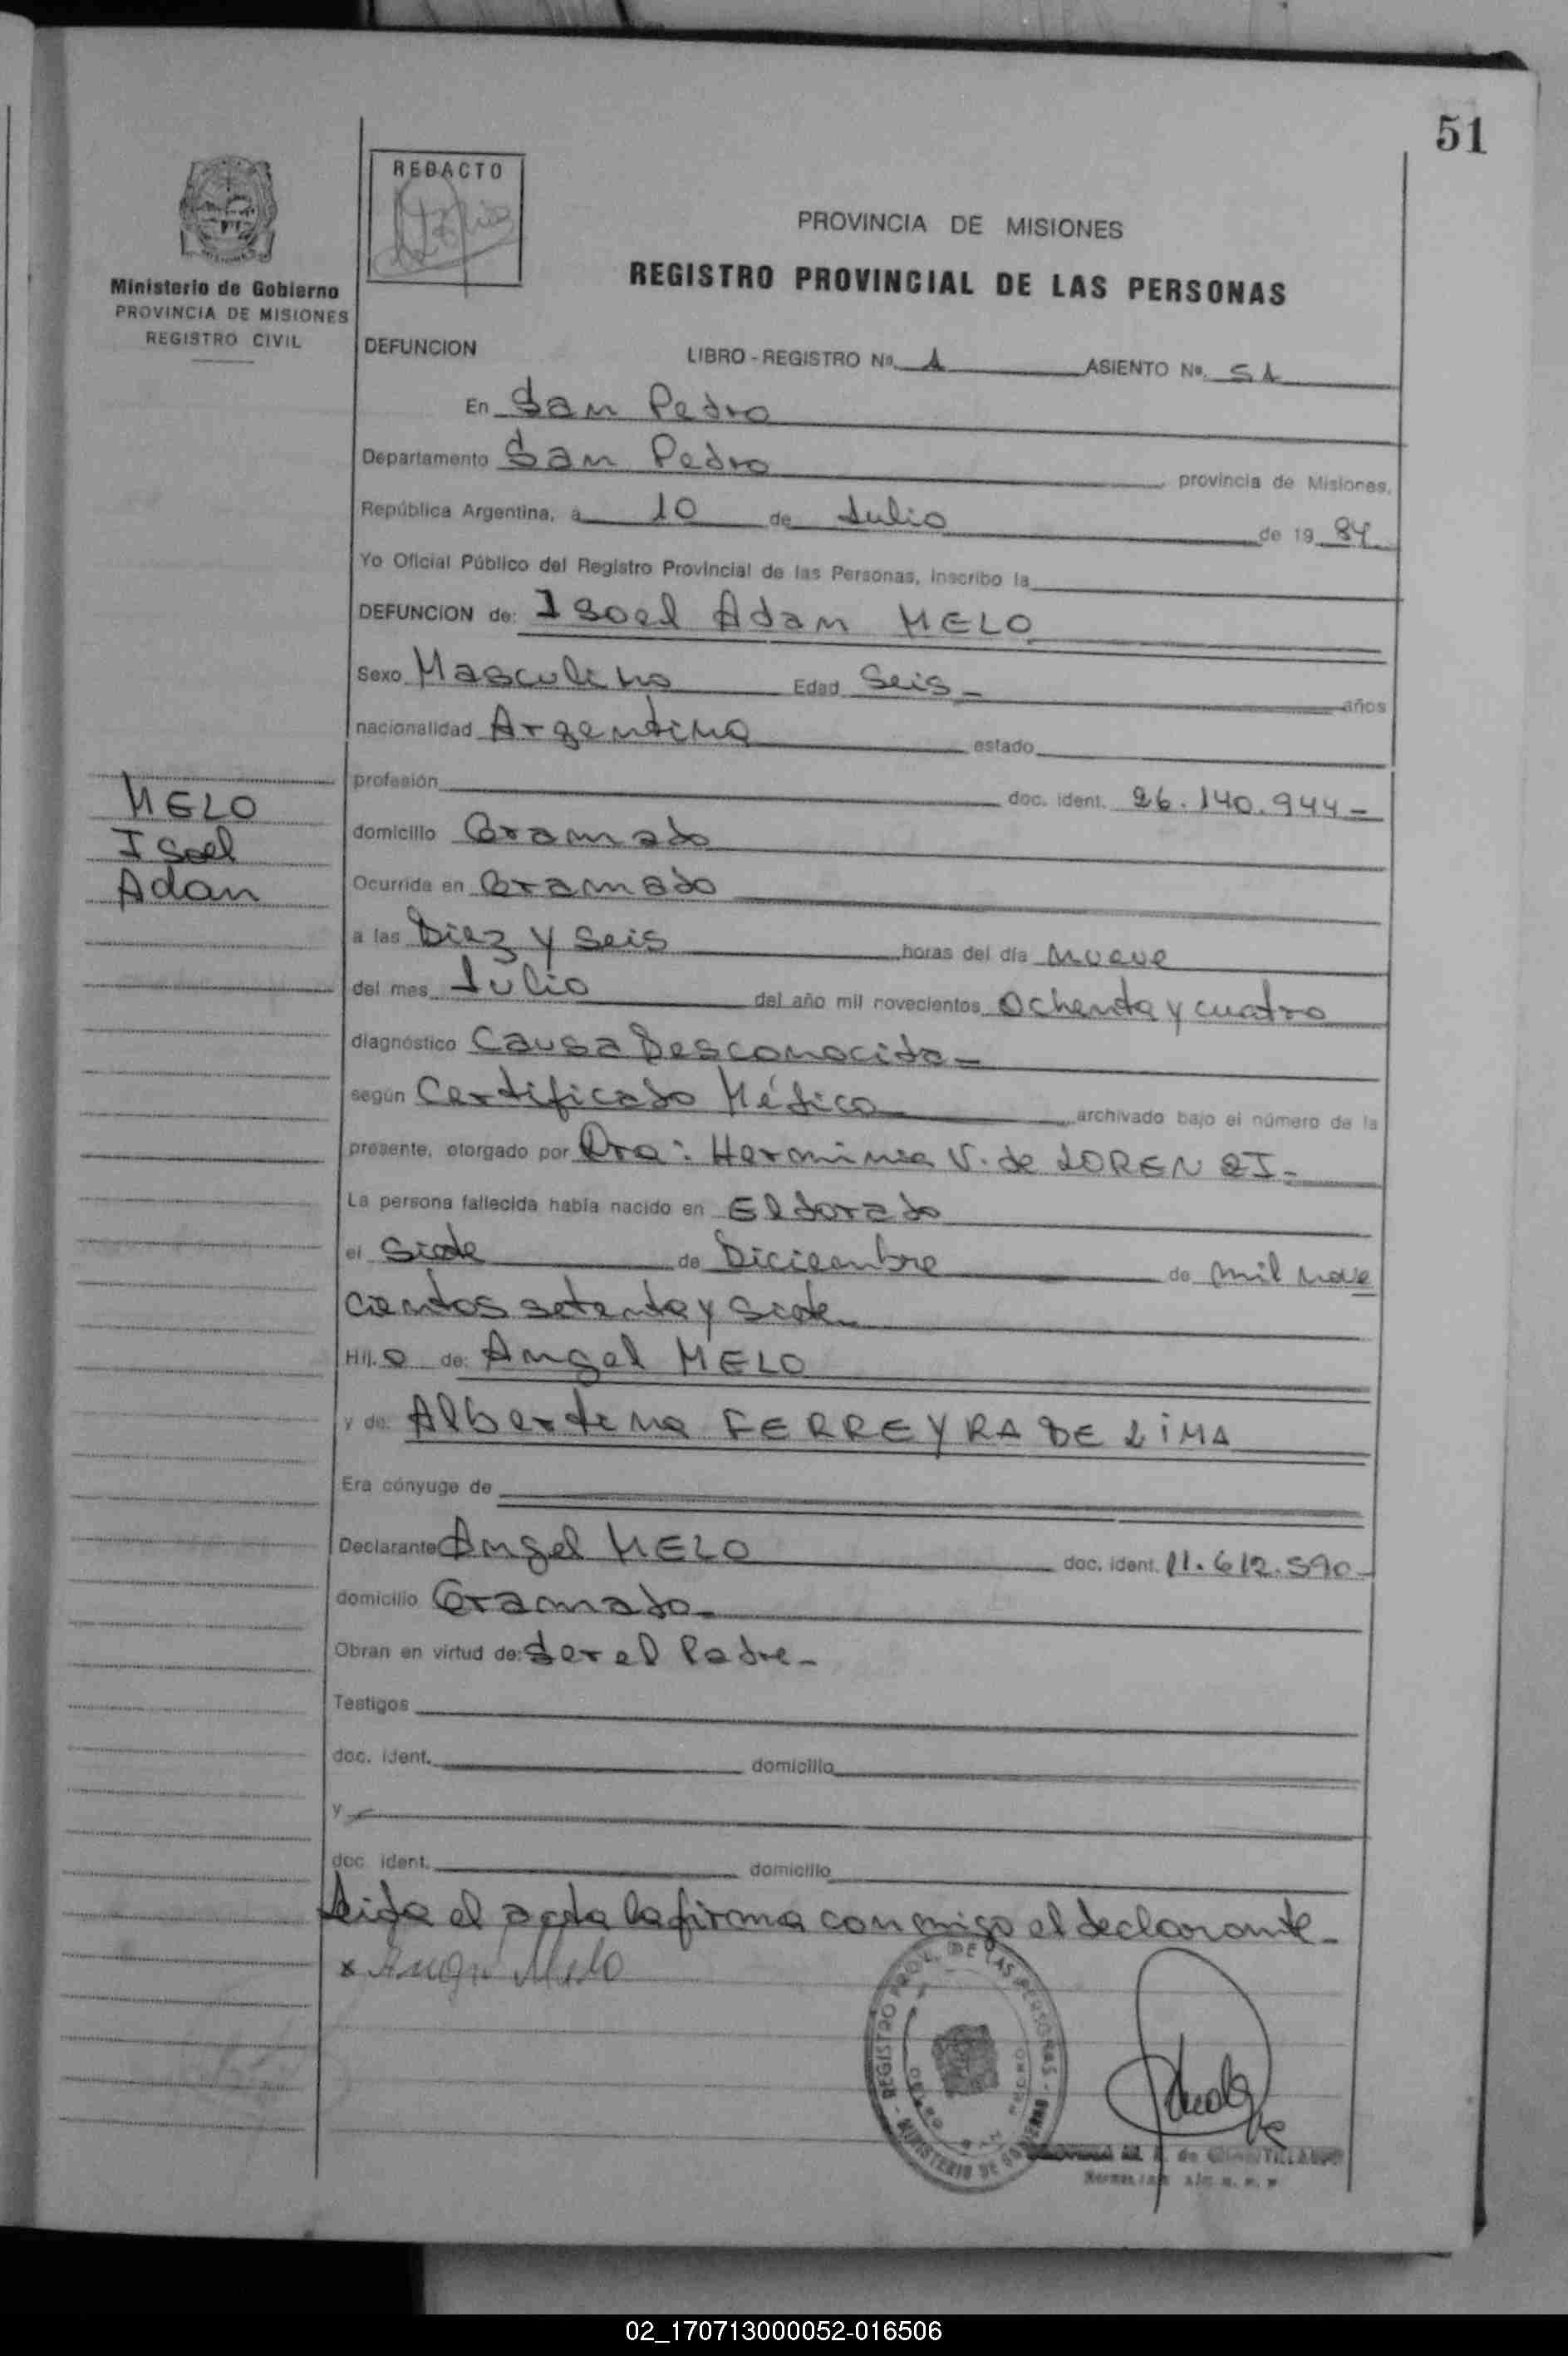 51
REDACTO
Ministerio de Gobierno
PROVINCIA DE MISIONES
REGISTRO CIVIL
PROVINCIA DE MISIONES
REGISTRO PROVINCIAL DE LAS PERSONAS
DEFUNCION LIBRO - REGISTRO Nº 1 ASIENTO Nº 51
En San Pedro
Departamento San Pedro provincia de Misiones,
República Argentina, a 10 de Julio de 19 84
Yo Oficial Público del Registro Provincial de las Personas, inscribo la
DEFUNCION de: Isoel Adam MELO
Sexo Masculino Edad Seis - años
nacionalidad Argentina estado
profesión doc. ident. 26.140.944 -
MELO
Isoel
Adan
domicilio Gramado
Ocurrida en Gramado
a las Diez y Seis horas del día nueve
del mes Julio del año mil novecientos Ochenta y cuatro
diagnóstico Causa Desconocida -
según Certificado Médico archivado bajo el número de la
presente, otorgado por Dra: Herminia V. de LORENZI -
La persona fallecida había nacido en Eldorado
el Siete de Diciembre de mil nove
cientos setenta y siete -
Hij. o de: Angel MELO
y de: Albertina FERREYRA DE LIMA
Era cónyuge de
Declarante Angel MELO doc. ident. 11.612.590 -
domicilio Gramado -
Obran en virtud de: Ser el Padre -
Testigos
doc. ident. domicilio
y
doc. ident. domicilio
Leida el acta la firma conmigo el declarante -
x Angel Melo
REGISTRO PROV. DE LAS PERSONAS - MINISTERIO DE GOBIERNO
02_170713000052-016506